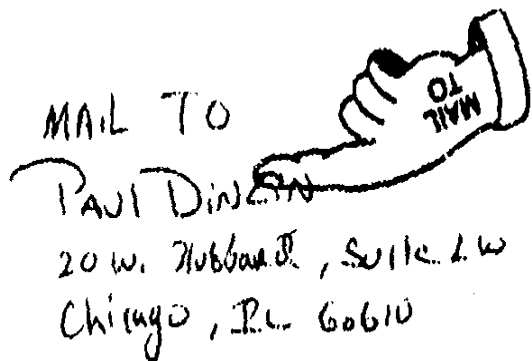 MAIL TO
MAIL TO
PAUl
20 W. Hubbard, Suite
Chicago, IL 60610